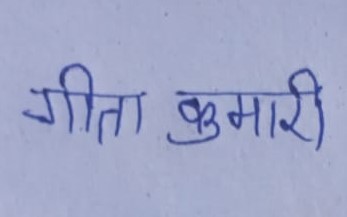 गीता कुमारी